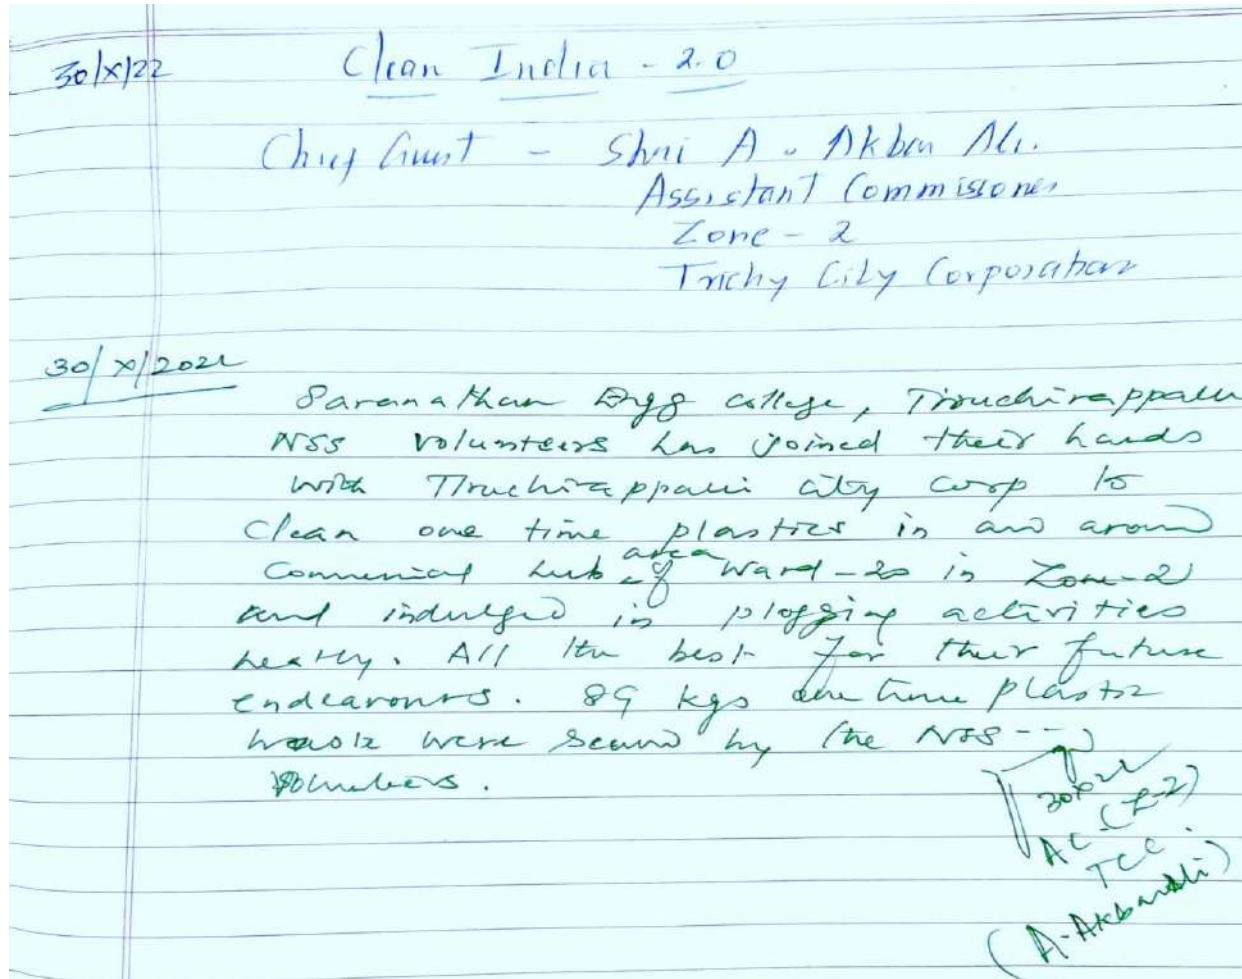 30/X/22
Clean India - 2.0
Chief Guest - Shri A. Akbar Ali.
Assistant Commissoner
Zone - 2
Trichy City Corporation
30/X/2022
Saranathan Engg college, Tiruchirappalli
NSS volunteers has joined their hands
with Tiruchirappalli city corp to
clean one time plastics in and around
Commercial hub area of Ward-20 in Zone-2
and indulged in plogging activities
neatly. All the best for their future
endeavours. 89 kgs one time plastic
waste were by the NSS ---
volunteers.
30X22
AC (Z-2)
TCC.
(A-Akbar Ali)